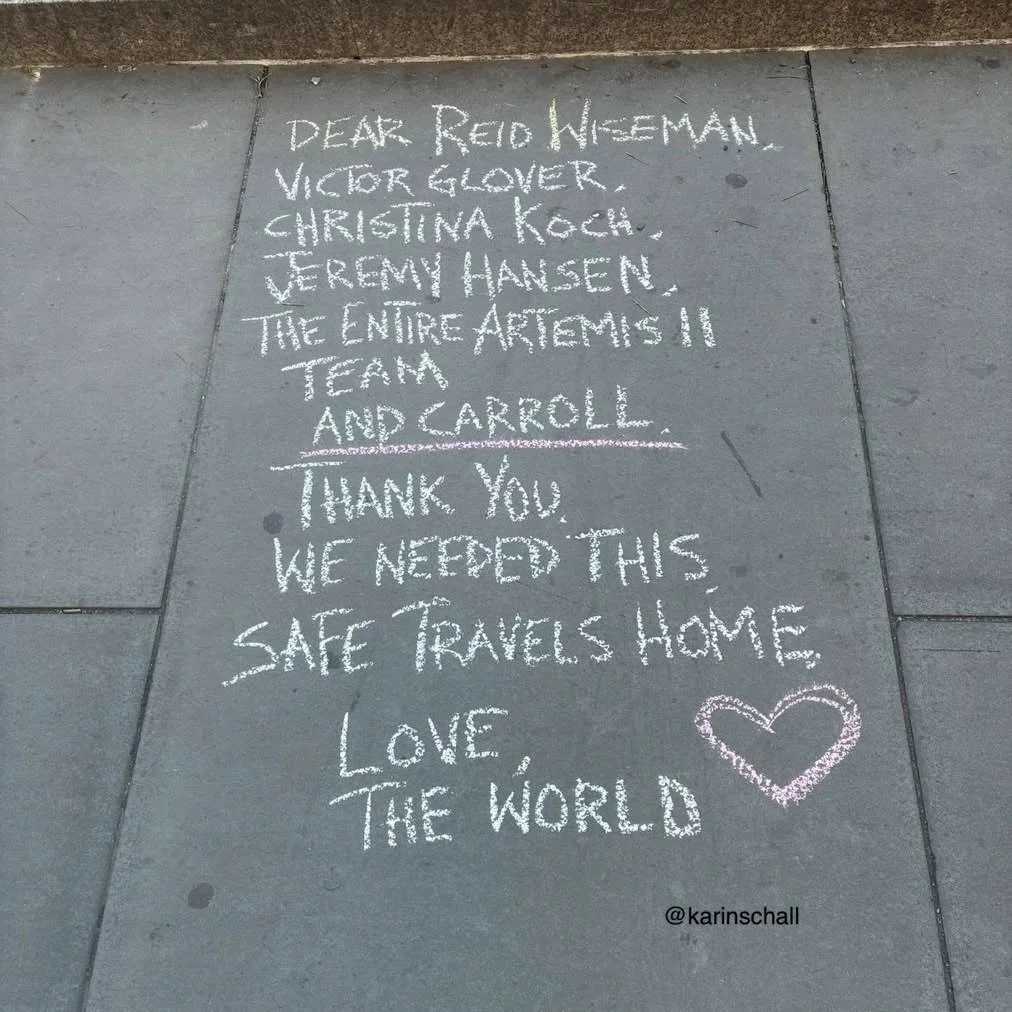 DEAR REID WISEMAN,
VICTOR GLOVER,
CHRISTINA KOCH,
JEREMY HANSEN,
THE ENTIRE ARTEMIS II
TEAM
AND CARROLL.
THANK YOU.
WE NEEDED THIS.
SAFE TRAVELS HOME.
LOVE,
THE WORLD
@karinschall